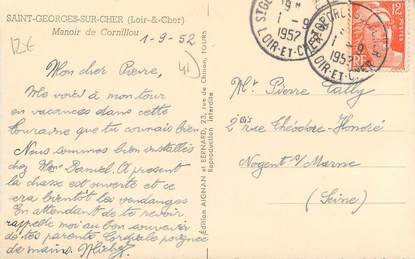 SAINT-GEORGES-SUR-CHER (Loir-&-Cher)
Manoir de Cornillou
12€
1-9-52
41
Mon cher Pierre,
Me voici à mon tour
en vacances dans cette
Touraine que tu connais bien
Nous sommes bien installés
chez Mme Daniel. A présent
la chasse est ouverte et ce
sera bientôt les vendanges
En attendant de te revoir
rappelle moi au bon souvenir
de tes parents. Cordiale poignée
de mains.
Édition AIGNAN et BERNARD, 23, rue de Chinon, TOURS
Reproduction Interdite
1-9
1952
LOIR-ET-CHER
12F
RF
Mr Pierre Tally
2bis rue Théodore-Honoré
Nogent s/ Marne
(Seine)